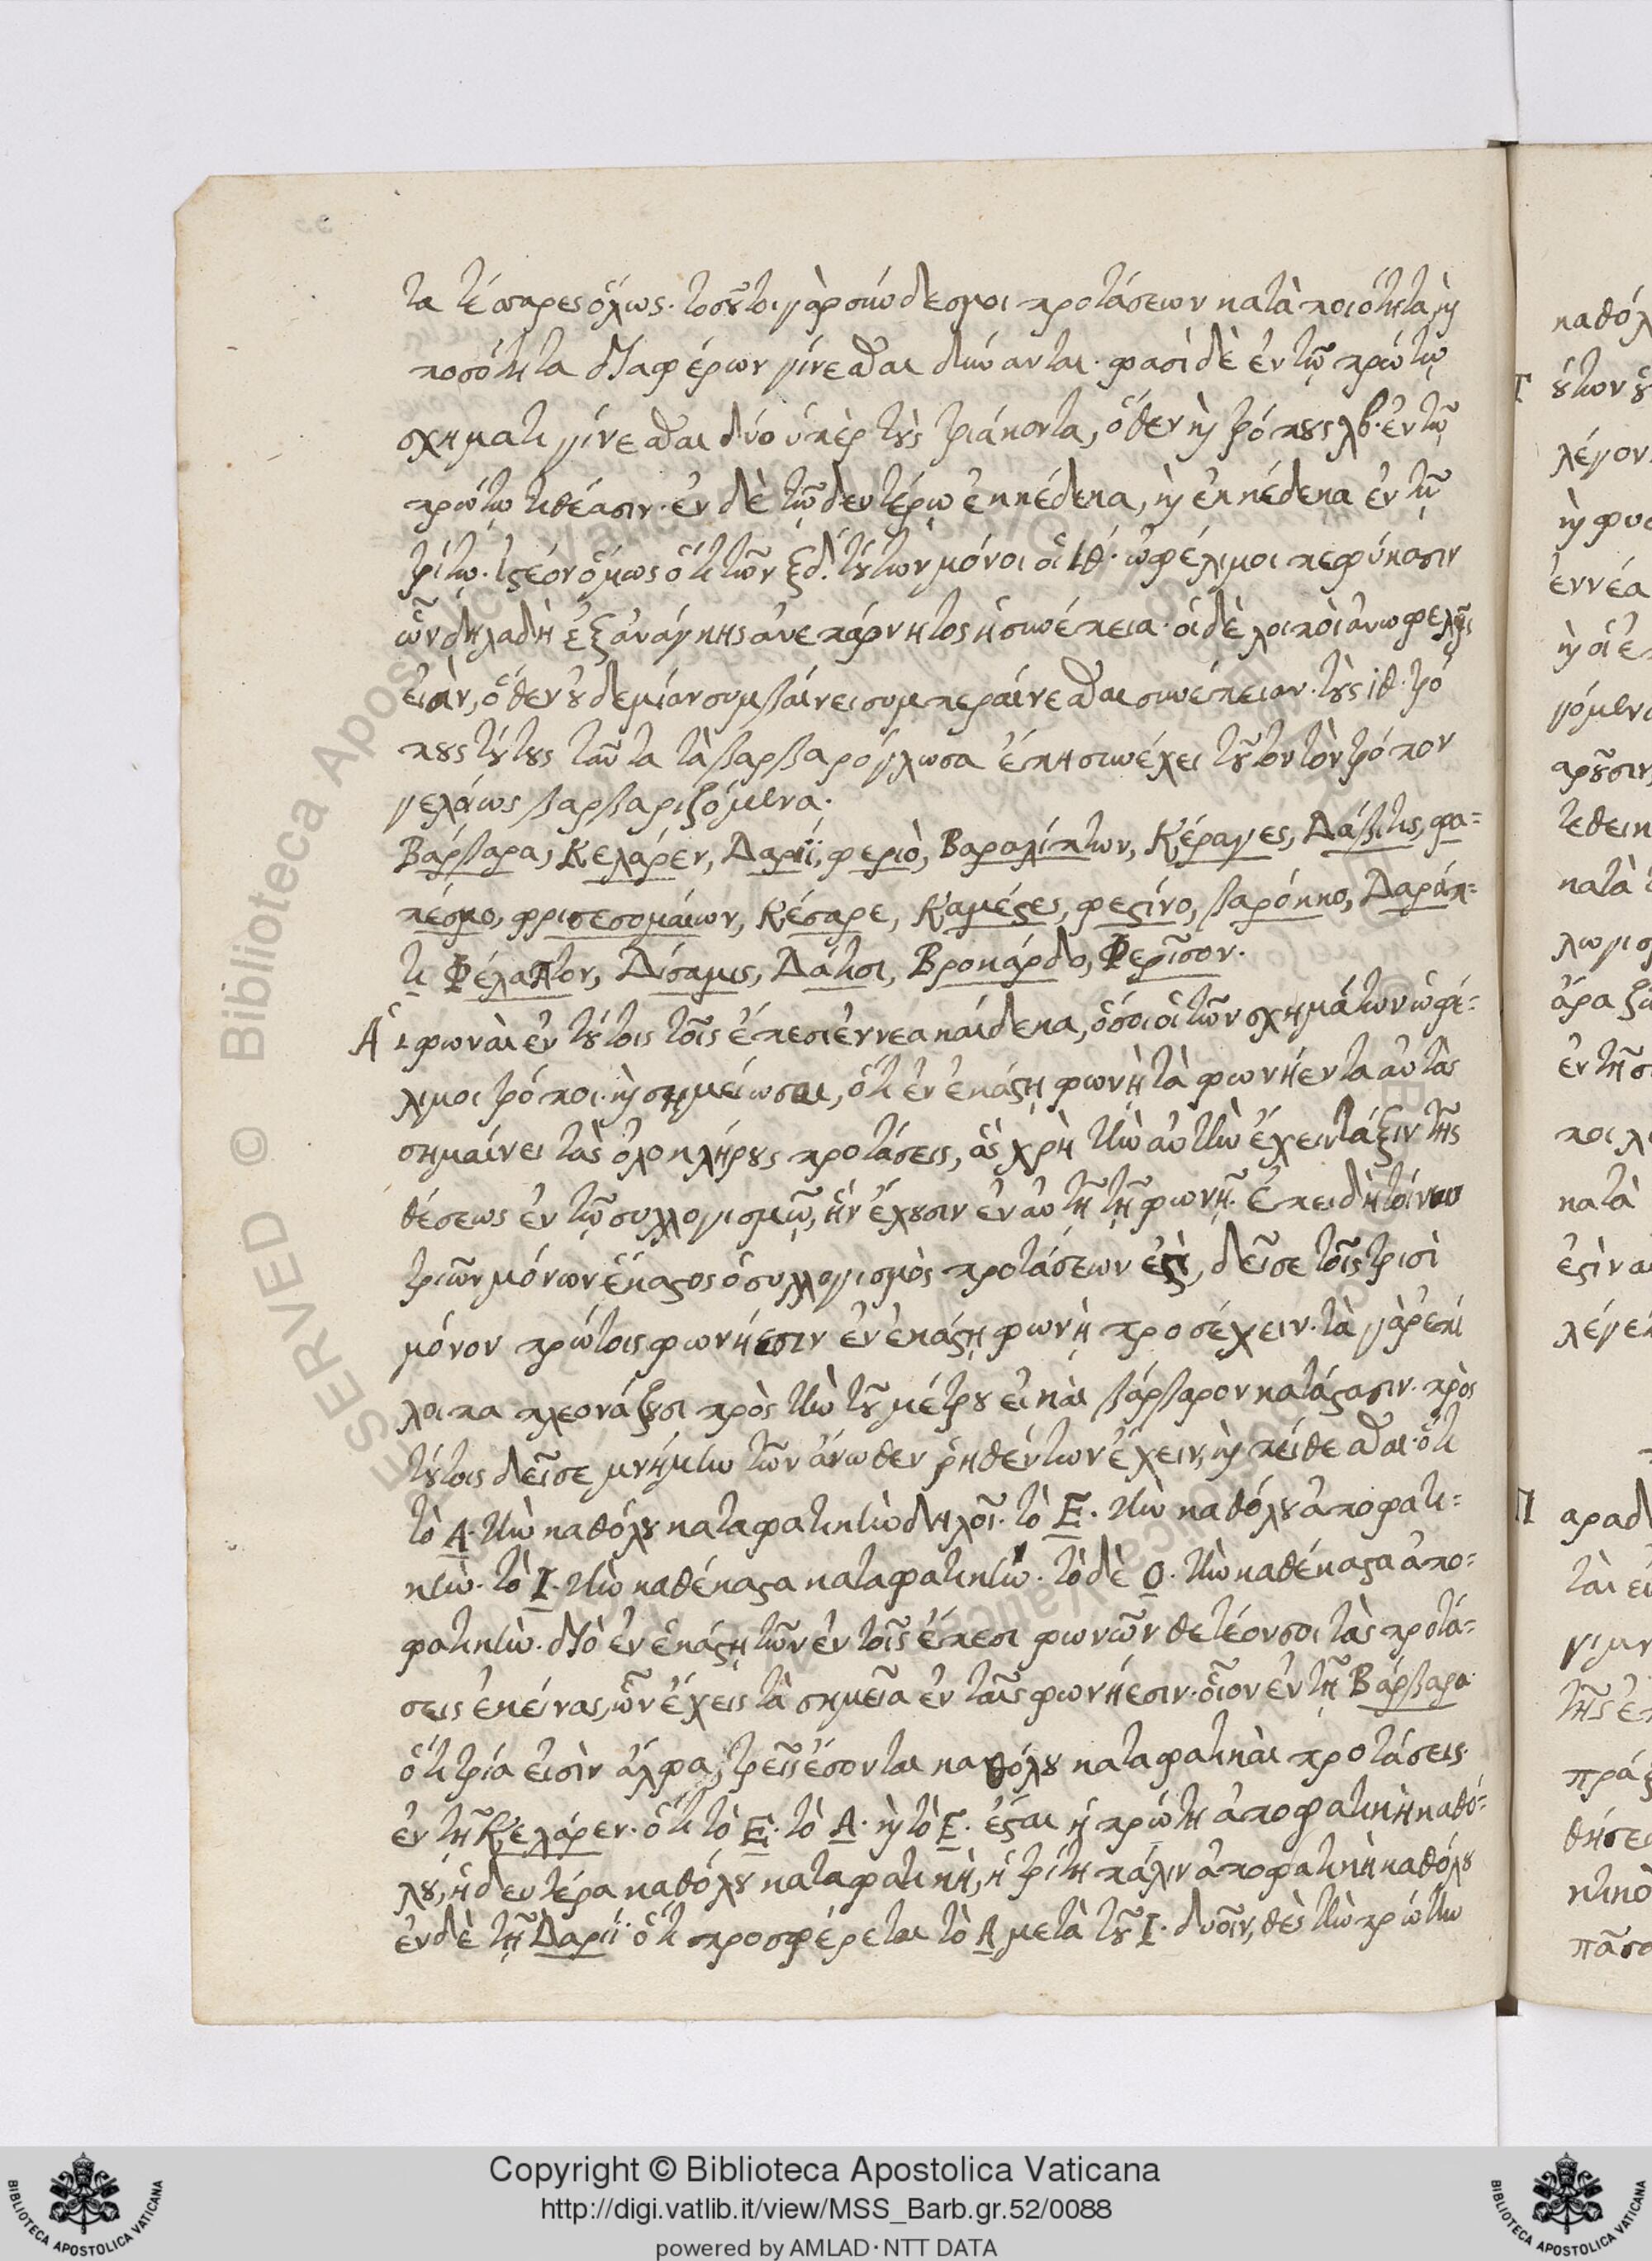 τα τέσσαρες ὅλως. τοσοῦτοι γὰρ σύνδεσμοι προτάσεων κατὰ ποιότητα καὶ
ποσότητα διαφέρων γίνεσθαι δύνανται. φασὶ δὲ ἐν τῷ πρώτῳ
σχήματι γίνεσθαι δύο ὑπὲρ τοὺς τριάκοντα, ὅθεν καὶ τρόπους λβ. ἐν τῷ
πρώτῳ τιθέασιν. ἐν δὲ τῷ δευτέρῳ ἑκκέδεκα, καὶ ἑκκέδεκα ἐν τῷ
τρίτῳ. ἰστέον ὅμως ὅτι τῶν ξδ. τούτων μόνοι οἱ ιθ. ὠφέλιμοι πεφύκασιν
ὧν δηλαδὴ ἐξ ἀνάγκης ἀνεπάρνητος ἡ συνέπεια. οἱ δὲ λοιποὶ ἀνωφελεῖς
εἰσὶν, ὅθεν οὐδεμίαν συμβαίνει συμπεραίνεσθαι συνέπειαν. τοὺς ιθ. τρό
πους τούτους ταῦτα τὰ βαρβαρόγλωσα ἔπη συνέχει τοῦτον τὸν τρόπον
γελοίως βαρβαριζόμενα.
Βάρβαρα, Κελάρεν, Δαρίϊ, φεριὸ, Βαραλίπτων, Κέραγες, Δάβιτις, φα-
πέσμο, φρισεσομάων, Κέσαρε, Καμέστες, φεστίνο, βαρόκκο, Δαράπ-
τι Φέλαπτον, Δίσαμις, Δάτισι, Βροκάρδο, Φερῖσον.
Αἱ φωναὶ ἐν τούτοις τοῖς ἔπεσι ἐννεακαίδεκα, ὅσοι οἱ τῶν σχημάτων ὠφέ-
λιμοι τρόποι. καὶ σημείωσαι, ὅτι ἐν ἑκάστῃ φωνῇ τὰ φωνήεντα αὐτὰς
σημαίνει τὰς ὁλοκλήρους προτάσεις, ἃς χρὴ τὴν αὐτὴν ἔχειν τάξιν τῆς
θέσεως ἐν τῷ συλλογισμῷ, ἣν ἔχουσιν ἐν αὐτῇ τῇ φωνῇ. Ἐπειδὴ τοίνυν
τριῶν μόνων ἕκαστος ὁ συλλογισμὸς προτάσεων ἐστὶ, δεῖ σε τοῖς τρισὶ
μόνον πρώτοις φωνήεσιν ἐν ἑκάστῃ φωνῇ προσέχειν. τὰ γὰρ ἐπί
λοιπα πλεονάζουσι πρὸς τὴν τοῦ μέτρου εἰκαὶ βάρβαρον κατάστασιν. πρὸς
τούτοις δεῖ σε μνήμην τῶν ἄνωθεν ῥηθέντων ἔχειν, καὶ πείθεσθαι. ὅτι
τὸ Α. τὴν καθόλου καταφατικὴν δηλοῖ. τὸ Ε. τὴν καθόλου ἀποφατι-
κήν. τὸ Ι. τὴν καθέκαστα καταφατικήν. τὸ δὲ Ο. τὴν καθέκαστα ἀπο-
φατικήν. διὸ ἐν ἑκάστῃ τῶν ἐν τοῖς ἔπεσι φωνῶν θετέον σοι τὰς προτά-
σεις ἐκείνας, ὧν ἔχεις τὰ σημεῖα ἐν ταῖς φωνήεσιν. οἷον ἐν τῇ Βάρβαρα
ὅτι τρία εἰσὶν ἄλφα, τρεῖς ἔσονται καθόλου καταφατικαὶ προτάσεις.
ἐν τῇ Κελάρεν. ὅτι τὸ Ε. τὸ Α. καὶ τὸ Ε. ἔσται ἡ πρώτη ἀποφατικὴ καθό-
λου, ἡ δευτέρα καθόλου καταφατική, ἡ τρίτη πάλιν ἀποφατικὴ καθόλου
ἐν δὲ τῇ Δαρίϊ ὅτι προσφέρεται τὸ Α μετὰ τοῦ Ι. δυοῖν, θὲς τὴν πρώτην
Copyright © Biblioteca Apostolica Vaticana
http://digi.vatlib.it/view/MSS_Barb.gr.52/0088
powered by AMLAD·NTT DATA